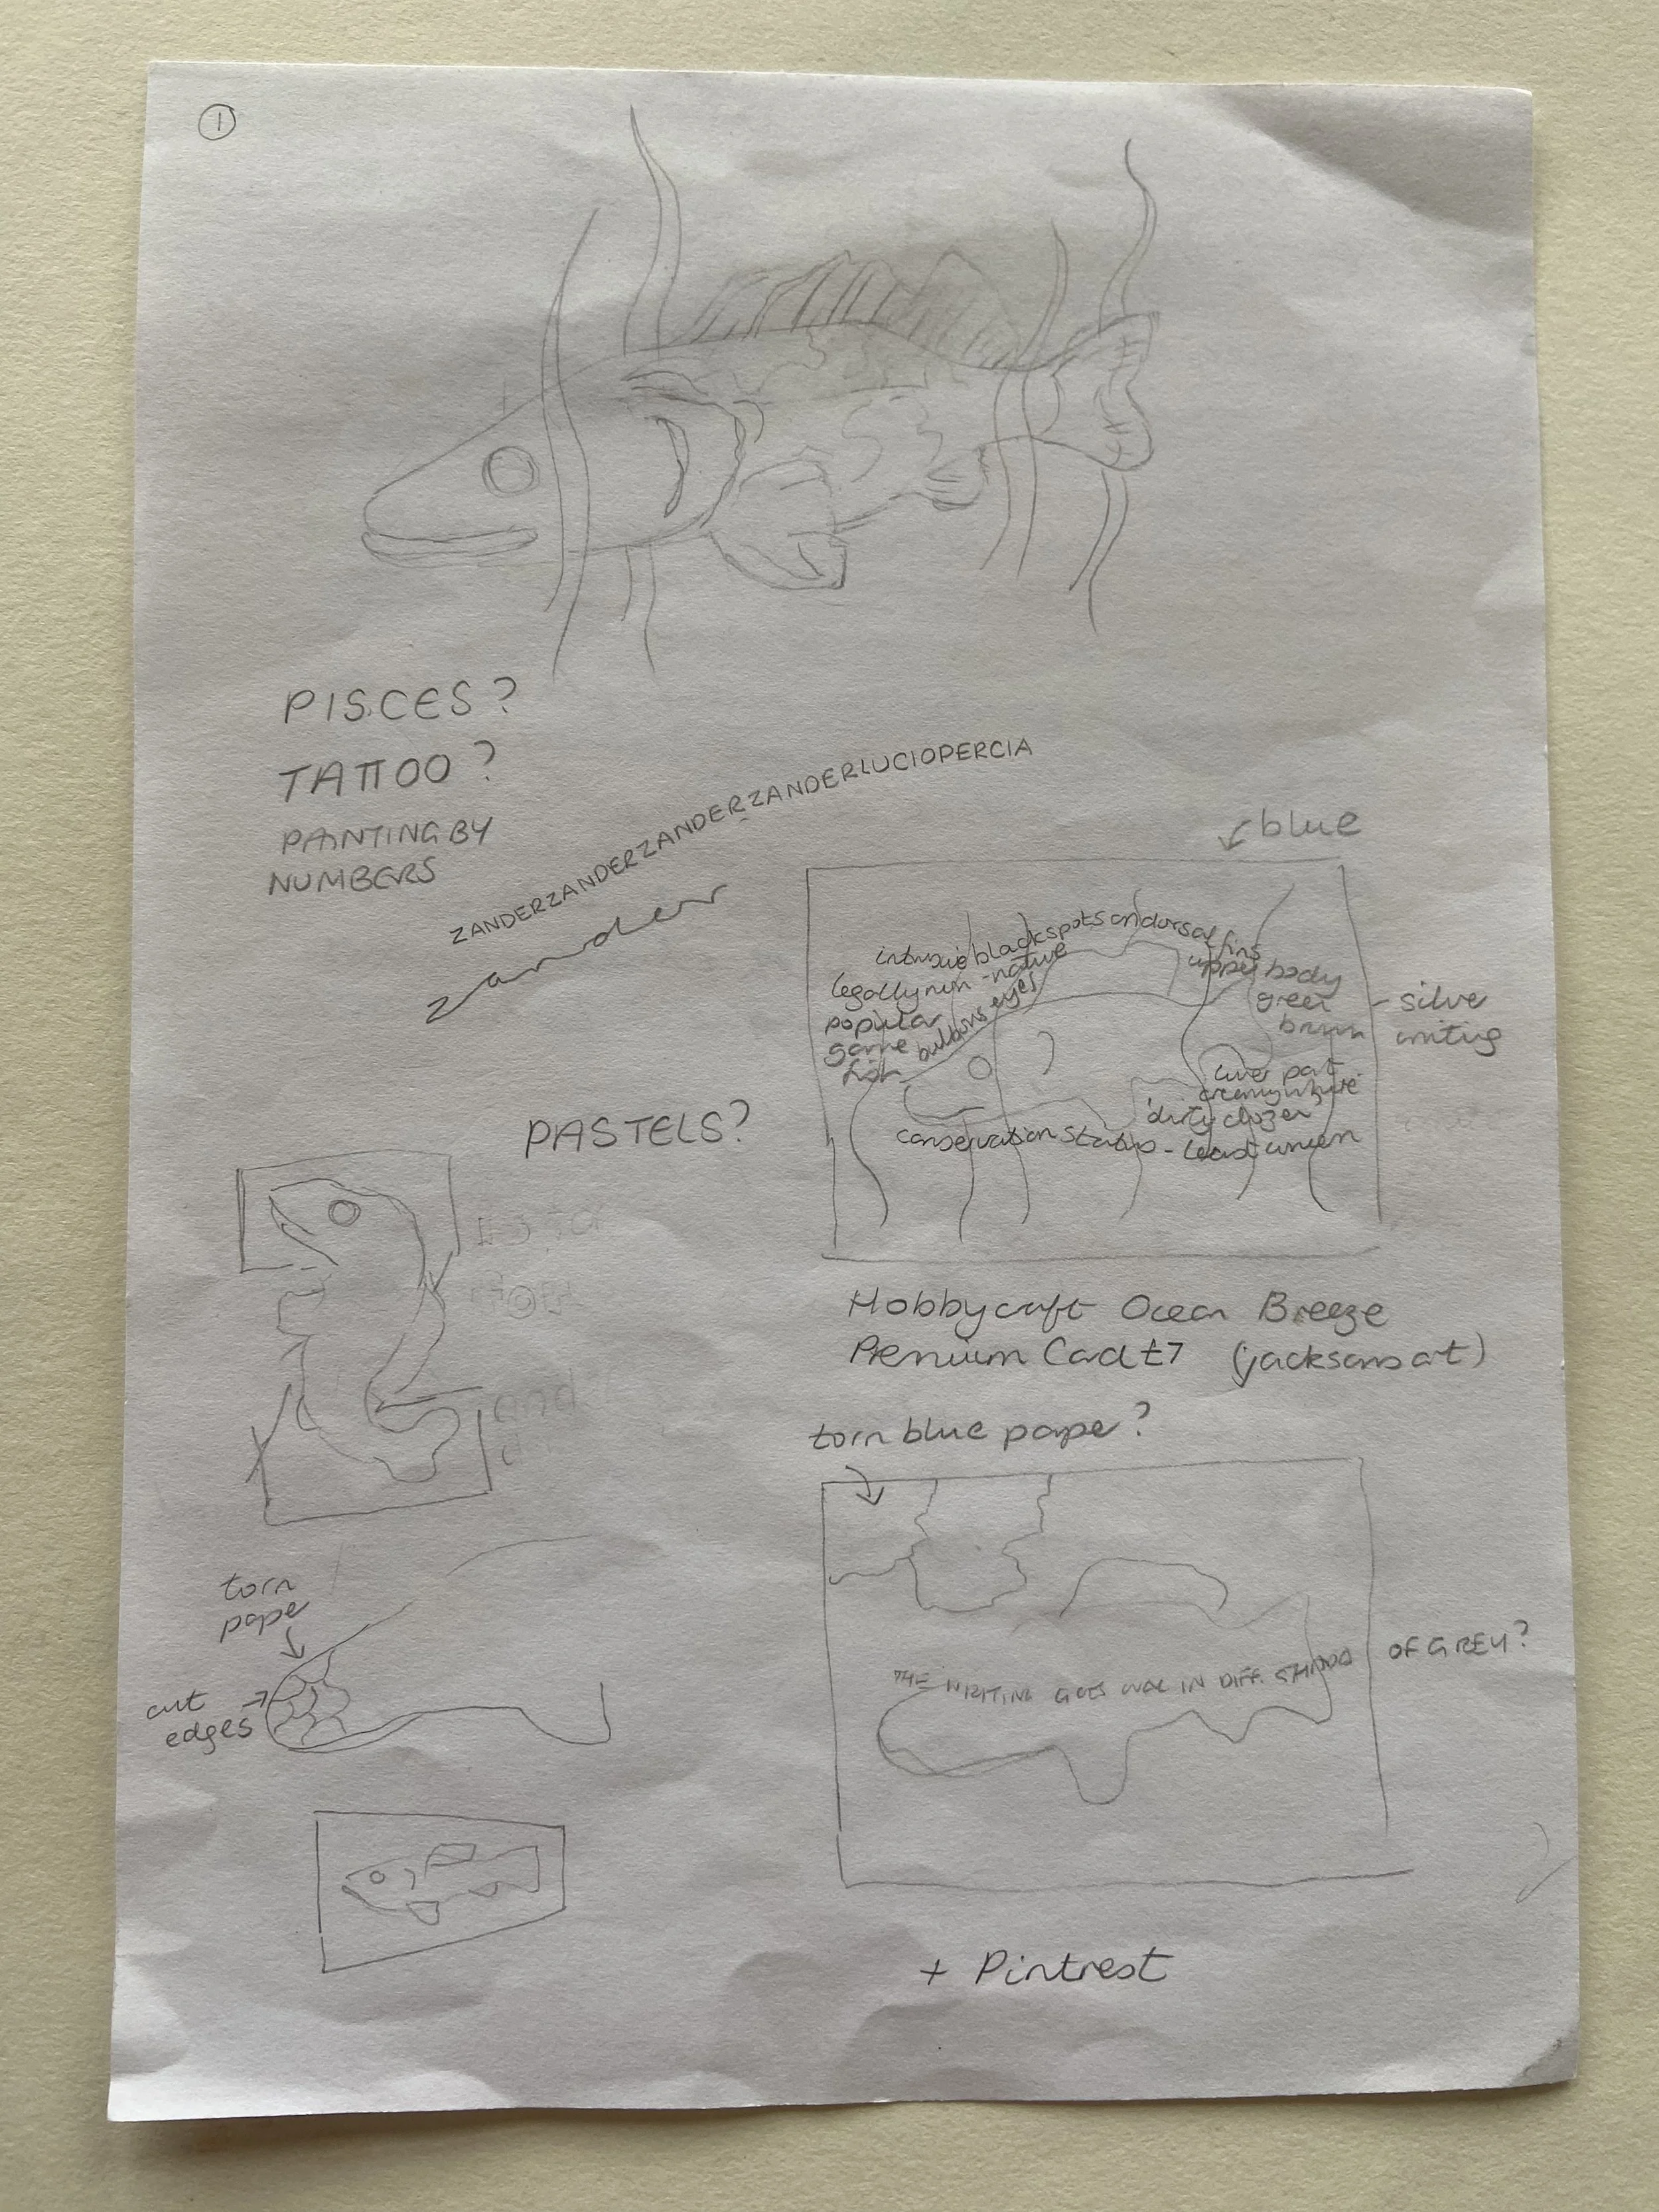 1
PISCES?
TATTOO?
PAINTING BY
NUMBERS
ZANDERZANDERZANDERZANDERZANDERLUCIOPERCIA
zander
blue
black spots on dorsal fins
legally non-native
popular
game
fish
bulbous eyes
upper body
green
brown
- silver
writing
lower part
creamy white
'dirty dozen'
conservation status - least concern
PASTELS?
Hobbycraft Ocean Breeze
Premium Card £7 (jacksons art)
torn blue paper?
torn
paper
cut
edges
THE WRITING GOES OVER IN DIFF. SHADES OF GREY?
+ Pintrest